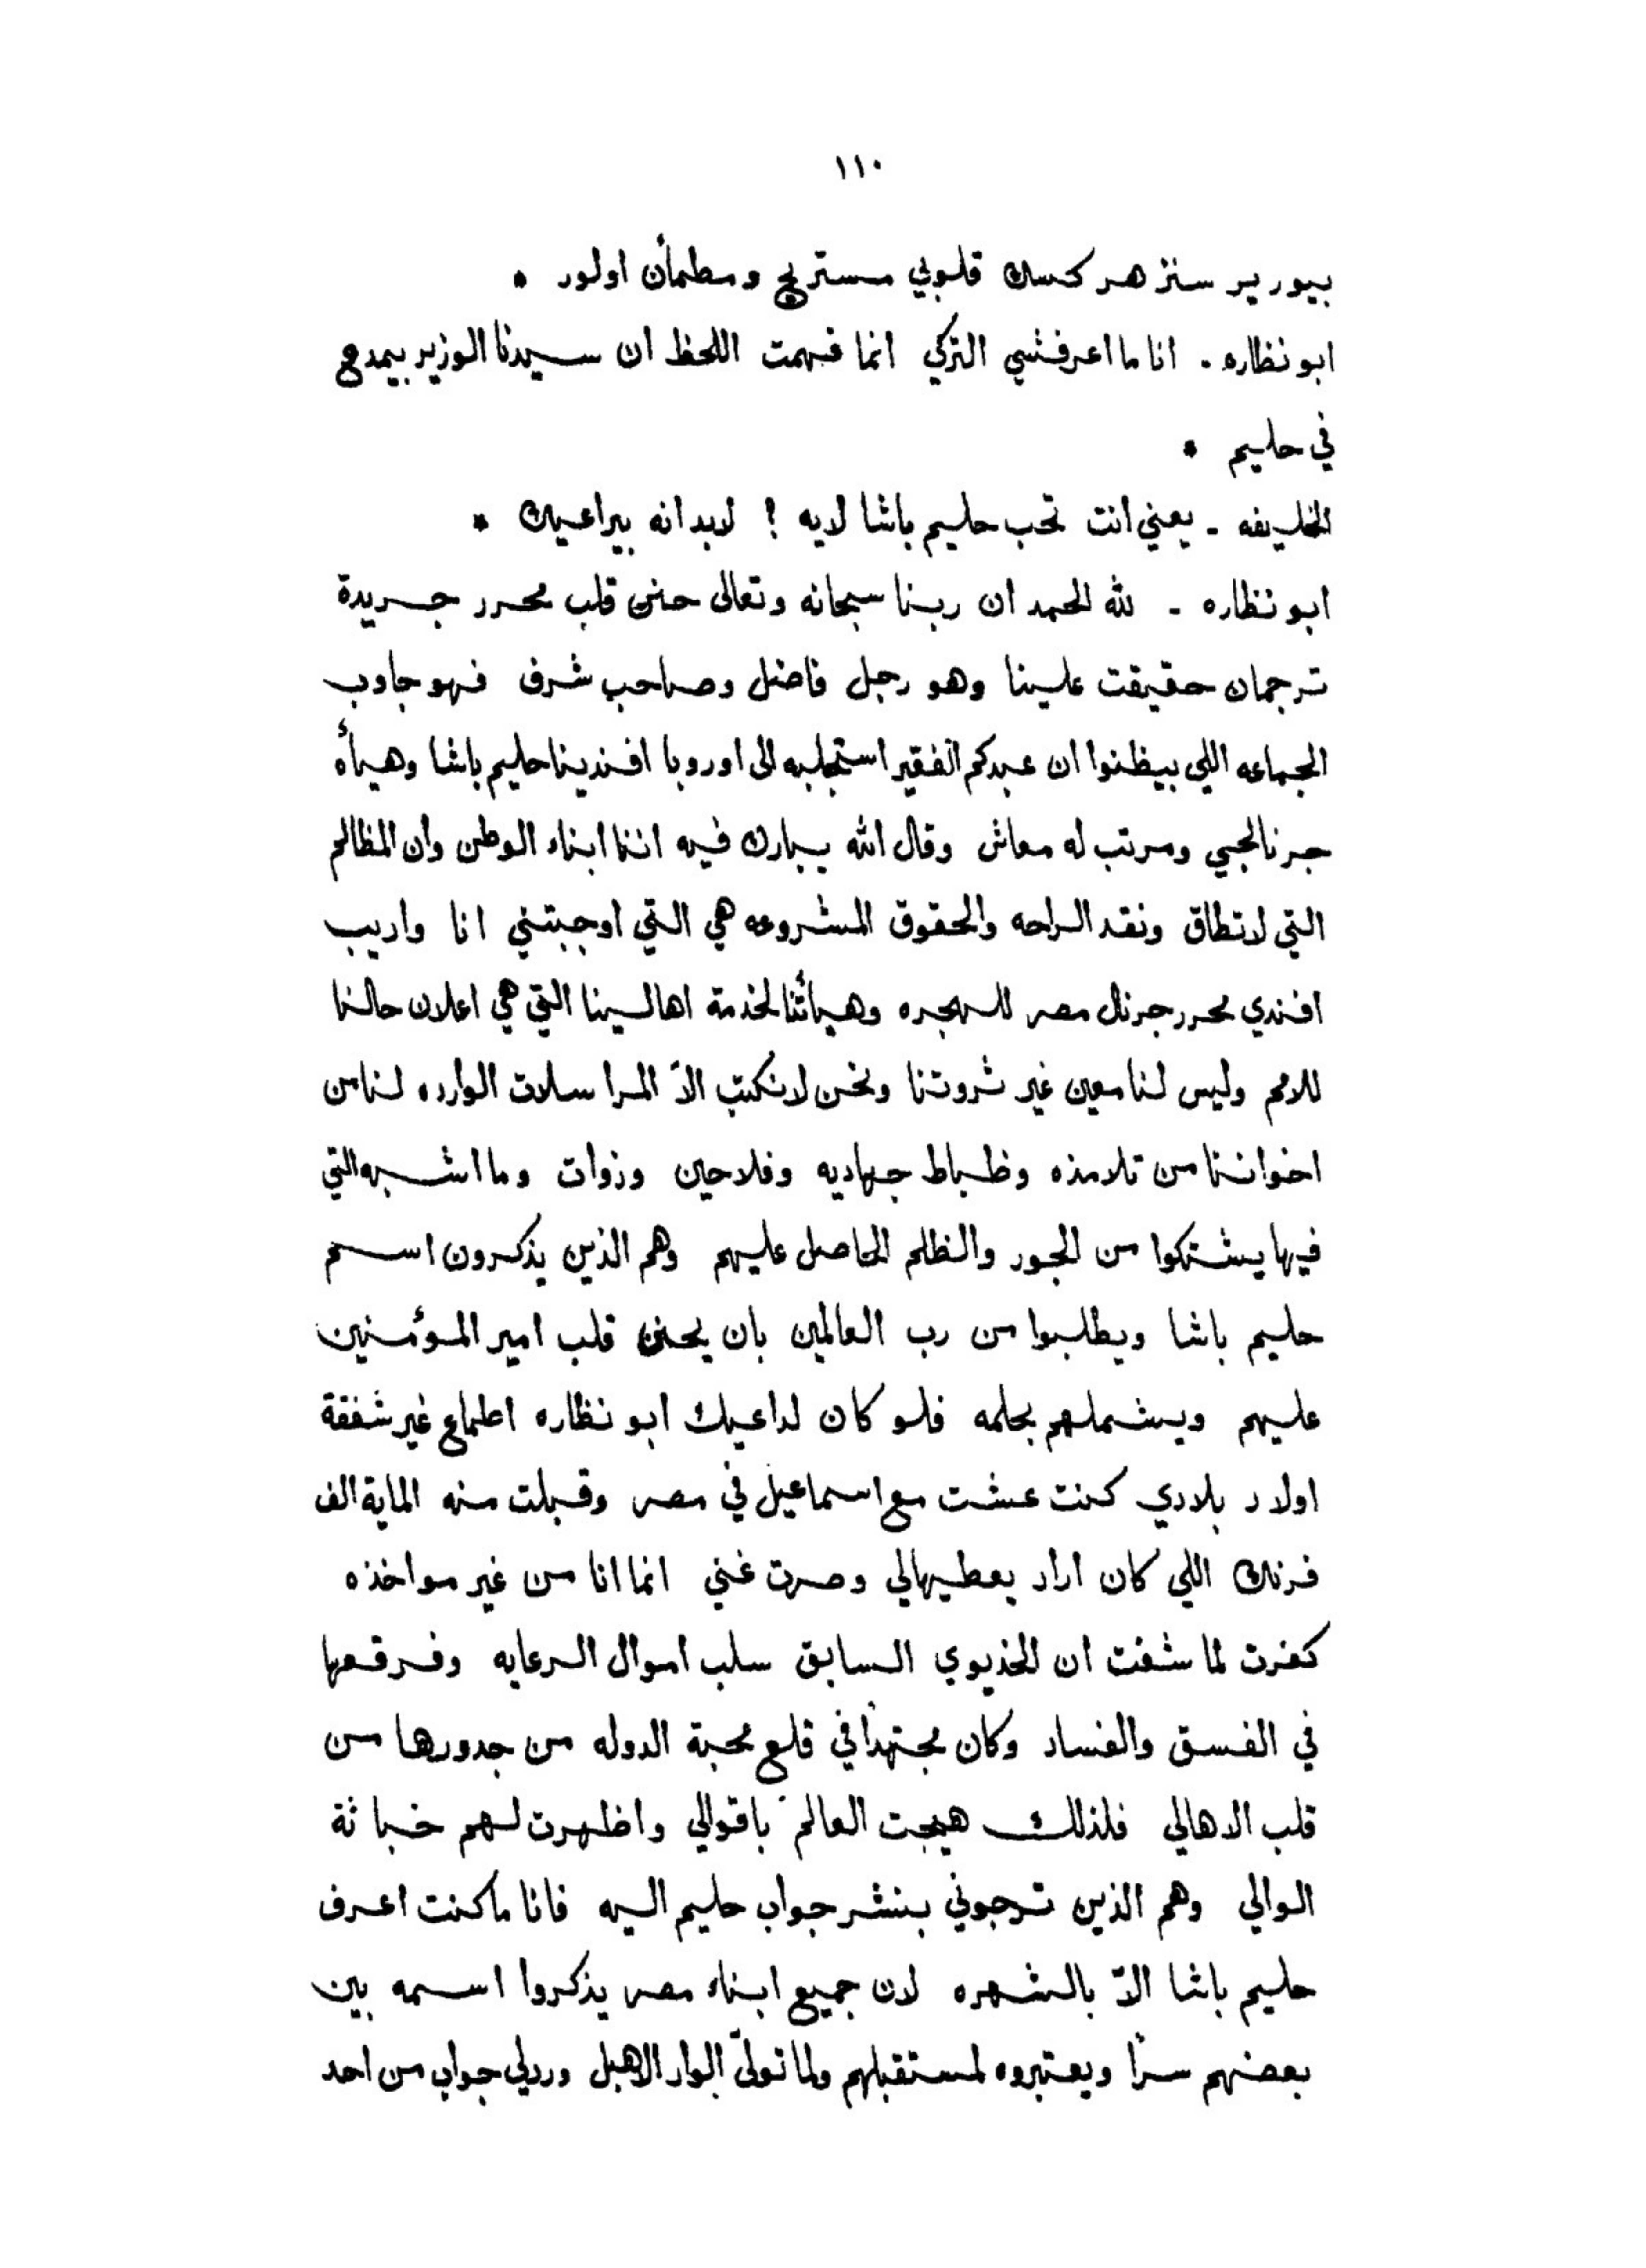 ١١٠
بيورير سنز هر كسك قلوبي مستريح ومطمأن اولور *
ابو نظاره . انا ما اعرفشي التركي انما فهمت اللحظ ان سيدنا الوزير بيمدح
في حليم *
الخليفه - يعني انت تحب حليم باشا لايه ! لابد انه بيراعيك *
ابو نظاره - لله الحمد ان ربنا سبحانه وتعالى حنن قلب محرر جريدة
ترجمان حقيقت علينا وهو رجل فاضل وصاحب شرف فهو جاوب
الجماعه اللي بيظنوا ان عبدكم الفقير استجلبه الى اوروبا افندينا حليم باشا وهيأه
جرنالجي ومرتب له معاش وقال الله يبارك فيه اننا ابناء الوطن وان المظالم
التي لا تطاق ونقد الراحه والحقوق المشروعه هي التي اوجبتني انا واديب
افندي محرر جرنال مصر للهجره وهيأتنا لخدمة اهالينا التي هي اعلان حالنا
للامم وليس لنا معين غير ثروتنا ونحن لا نكتب الاّ المراسلات الوارده لنا من
اخواننا من تلامذه وظباط جهاديه وفلاحين وزوات وما اشبه التي
فيها يشتكوا من الجور والظلم الحاصل عليهم وهم الذين يذكرون اسم
حليم باشا ويطلبوا من رب العالمين بان يحنن قلب امير المؤمنين
عليهم ويشملهم بحلمه فلو كان لداعيك ابو نظاره اطماع غير شفقة
اولاد بلادي كنت عشت مع اسماعيل في مصر وقبلت منه الماية الف
فرنك اللي كان اراد يعطيهالي وصرت غني انما انا من غير مواخذه
كفرت لما شفت ان الخديوي السابق سلب اموال الرعايه وفرقعها
في الفسق والفساد وكان مجتهداً في قلع محبة الدوله من جدورها من
قلب الاهالي فلذلك هيجت العالم باقوالي واظهرت لهم خباثة
الوالي وهم الذين ترجوني بنشر جواب حليم اليه فانا ما كنت اعرف
حليم باشا الاّ بالشهره لان جميع ابناء مصر يذكروا اسمه بين
بعضهم سراً ويعتبروه لمستقبلهم ولما تولّى الواد الاهبل وردلي جواب من احد